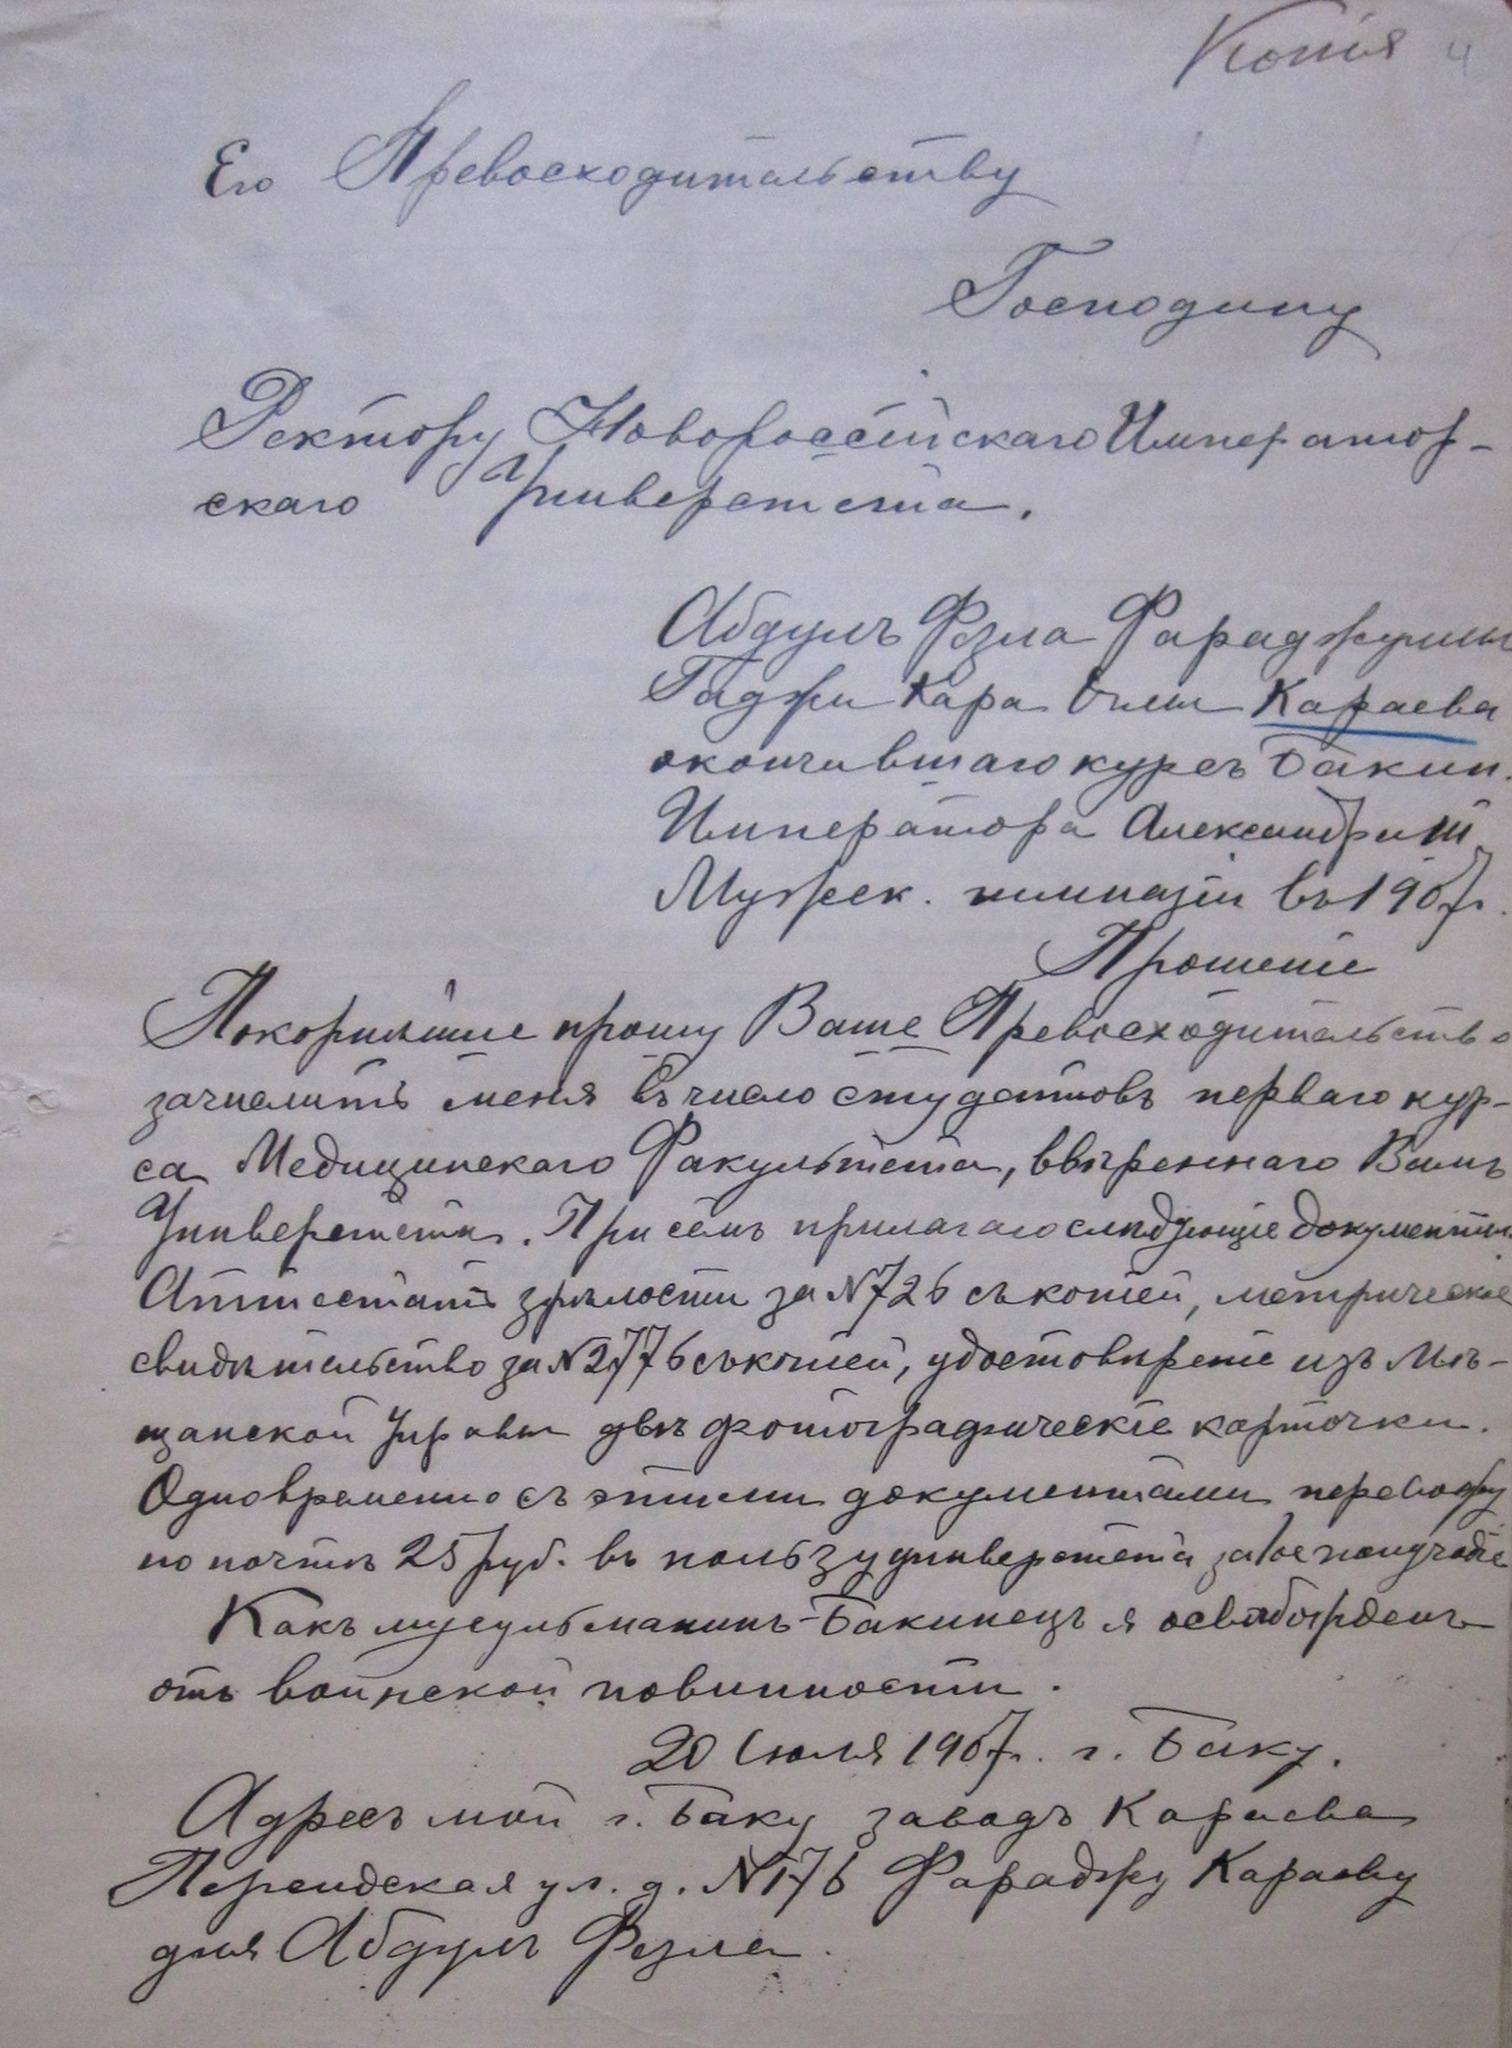 Копія 4
Его Превосходительству
Господину
Ректору Новороссійскаго Император-
скаго Университета.
Абдулъ Фзла Фараджуллы
Гаджи Кара Оглы Караева
окончившаго курсъ Бакин.
Императора Александра III
Мужск. гимназіи въ 1907 г.
Прошеніе
Покорнѣйше прошу Ваше Превосходительство
зачислить меня въ число студентовъ перваго кур-
са Медицинскаго Факультета, ввѣреннаго Вамъ
Университета. При семъ прилагаю слѣдующіе документы.
Аттестатъ зрѣлости за N 726 съ копіей, метрическое
свидѣтельство за N 2776 съ копіей, удостовѣреніе изъ Мѣ-
щанской Управы двѣ фотографическіе карточки.
Одновременно съ этими документами перевожу
по почтѣ 25 руб. въ пользу университета за
Какъ мусульманинъ-Бакинецъ я освобожденъ
отъ воинской повинности.
20 Іюля 1907 г. г. Баку.
Адресъ мой г. Баку заводъ Караева
Персидская ул. д. N 176 Фараджу Караеву
для Абдулъ Фзла.